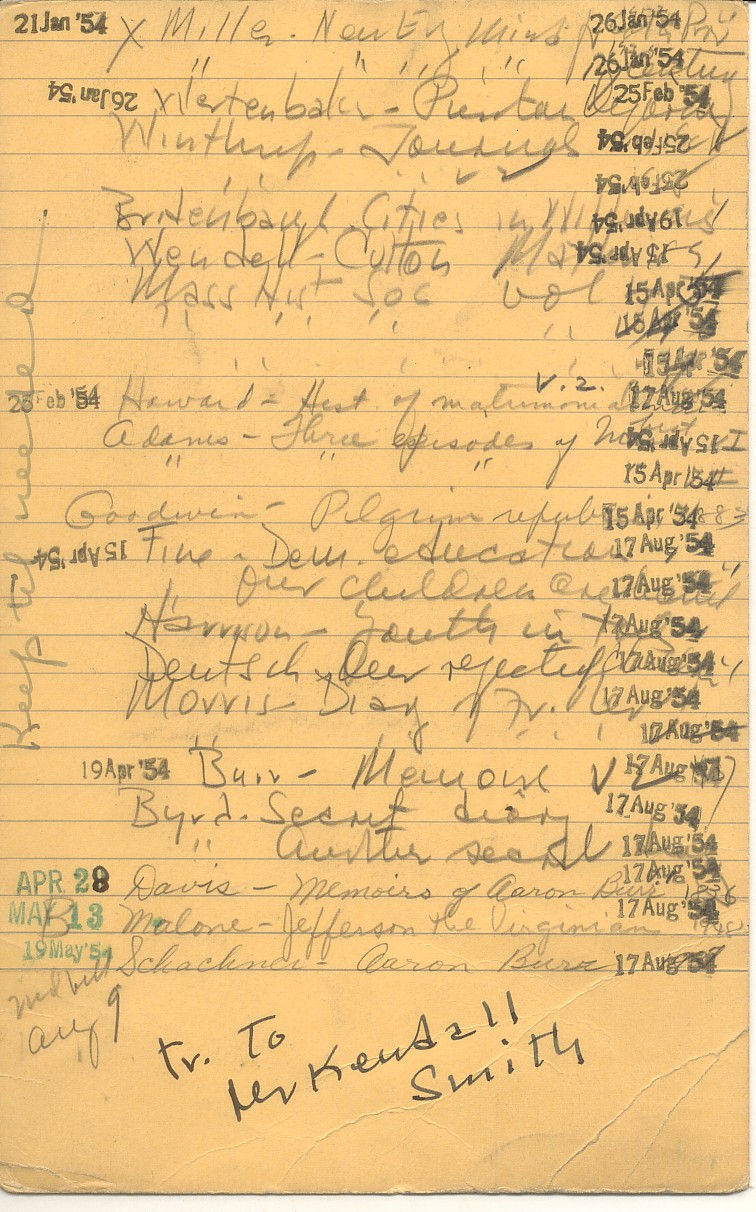 21 Jan '54 x Miller - New Eng Mind 26 Jan '54
" " " " 26 Jan '54
26 Jan '54 x Wertenbaker - Puritan 25 Feb '54
Winthrop - Journal 25 Feb '54
" " v 2 25 Feb '54
Bridenbaugh Cities in Wilderness 19 Apr '54
Wendell - Cotton Mather 15 Apr '54
Mass Hist Soc vol 15 Apr '54
" " " " 15 Apr '54
" " " " 15 Apr '54
v. 2.
25 Feb '54 Howard - Hist. of matrimonial 17 Aug '54
Adams - Three episodes of Mass 15 Apr '54
" " " 15 Apr '54
Goodwin - Pilgrim republic 15 Apr '54
15 Apr '54 Fine - Dem. education 17 Aug '54
" Our children 17 Aug '54
Harrison - Youth in 17 Aug '54
Deutsch - Our rejected 17 Aug '54
Morris Diary of Fr. Rev 17 Aug '54
" " " " 17 Aug '54
19 Apr '54 Burr - Memoirs v 2 17 Aug '54
Byrd - Secret diary 17 Aug '54
" Another secret 17 Aug '54
17 Aug '54
APR 28 Davis - Memoirs of Aaron Burr 1836
MAY 13 Malone - Jefferson the Virginian 1948 17 Aug '54
19 May '54 Schachner - Aaron Burr 17 Aug '54
Aug 9
Keep til needed
tr. To
Mr Kendall
Smith